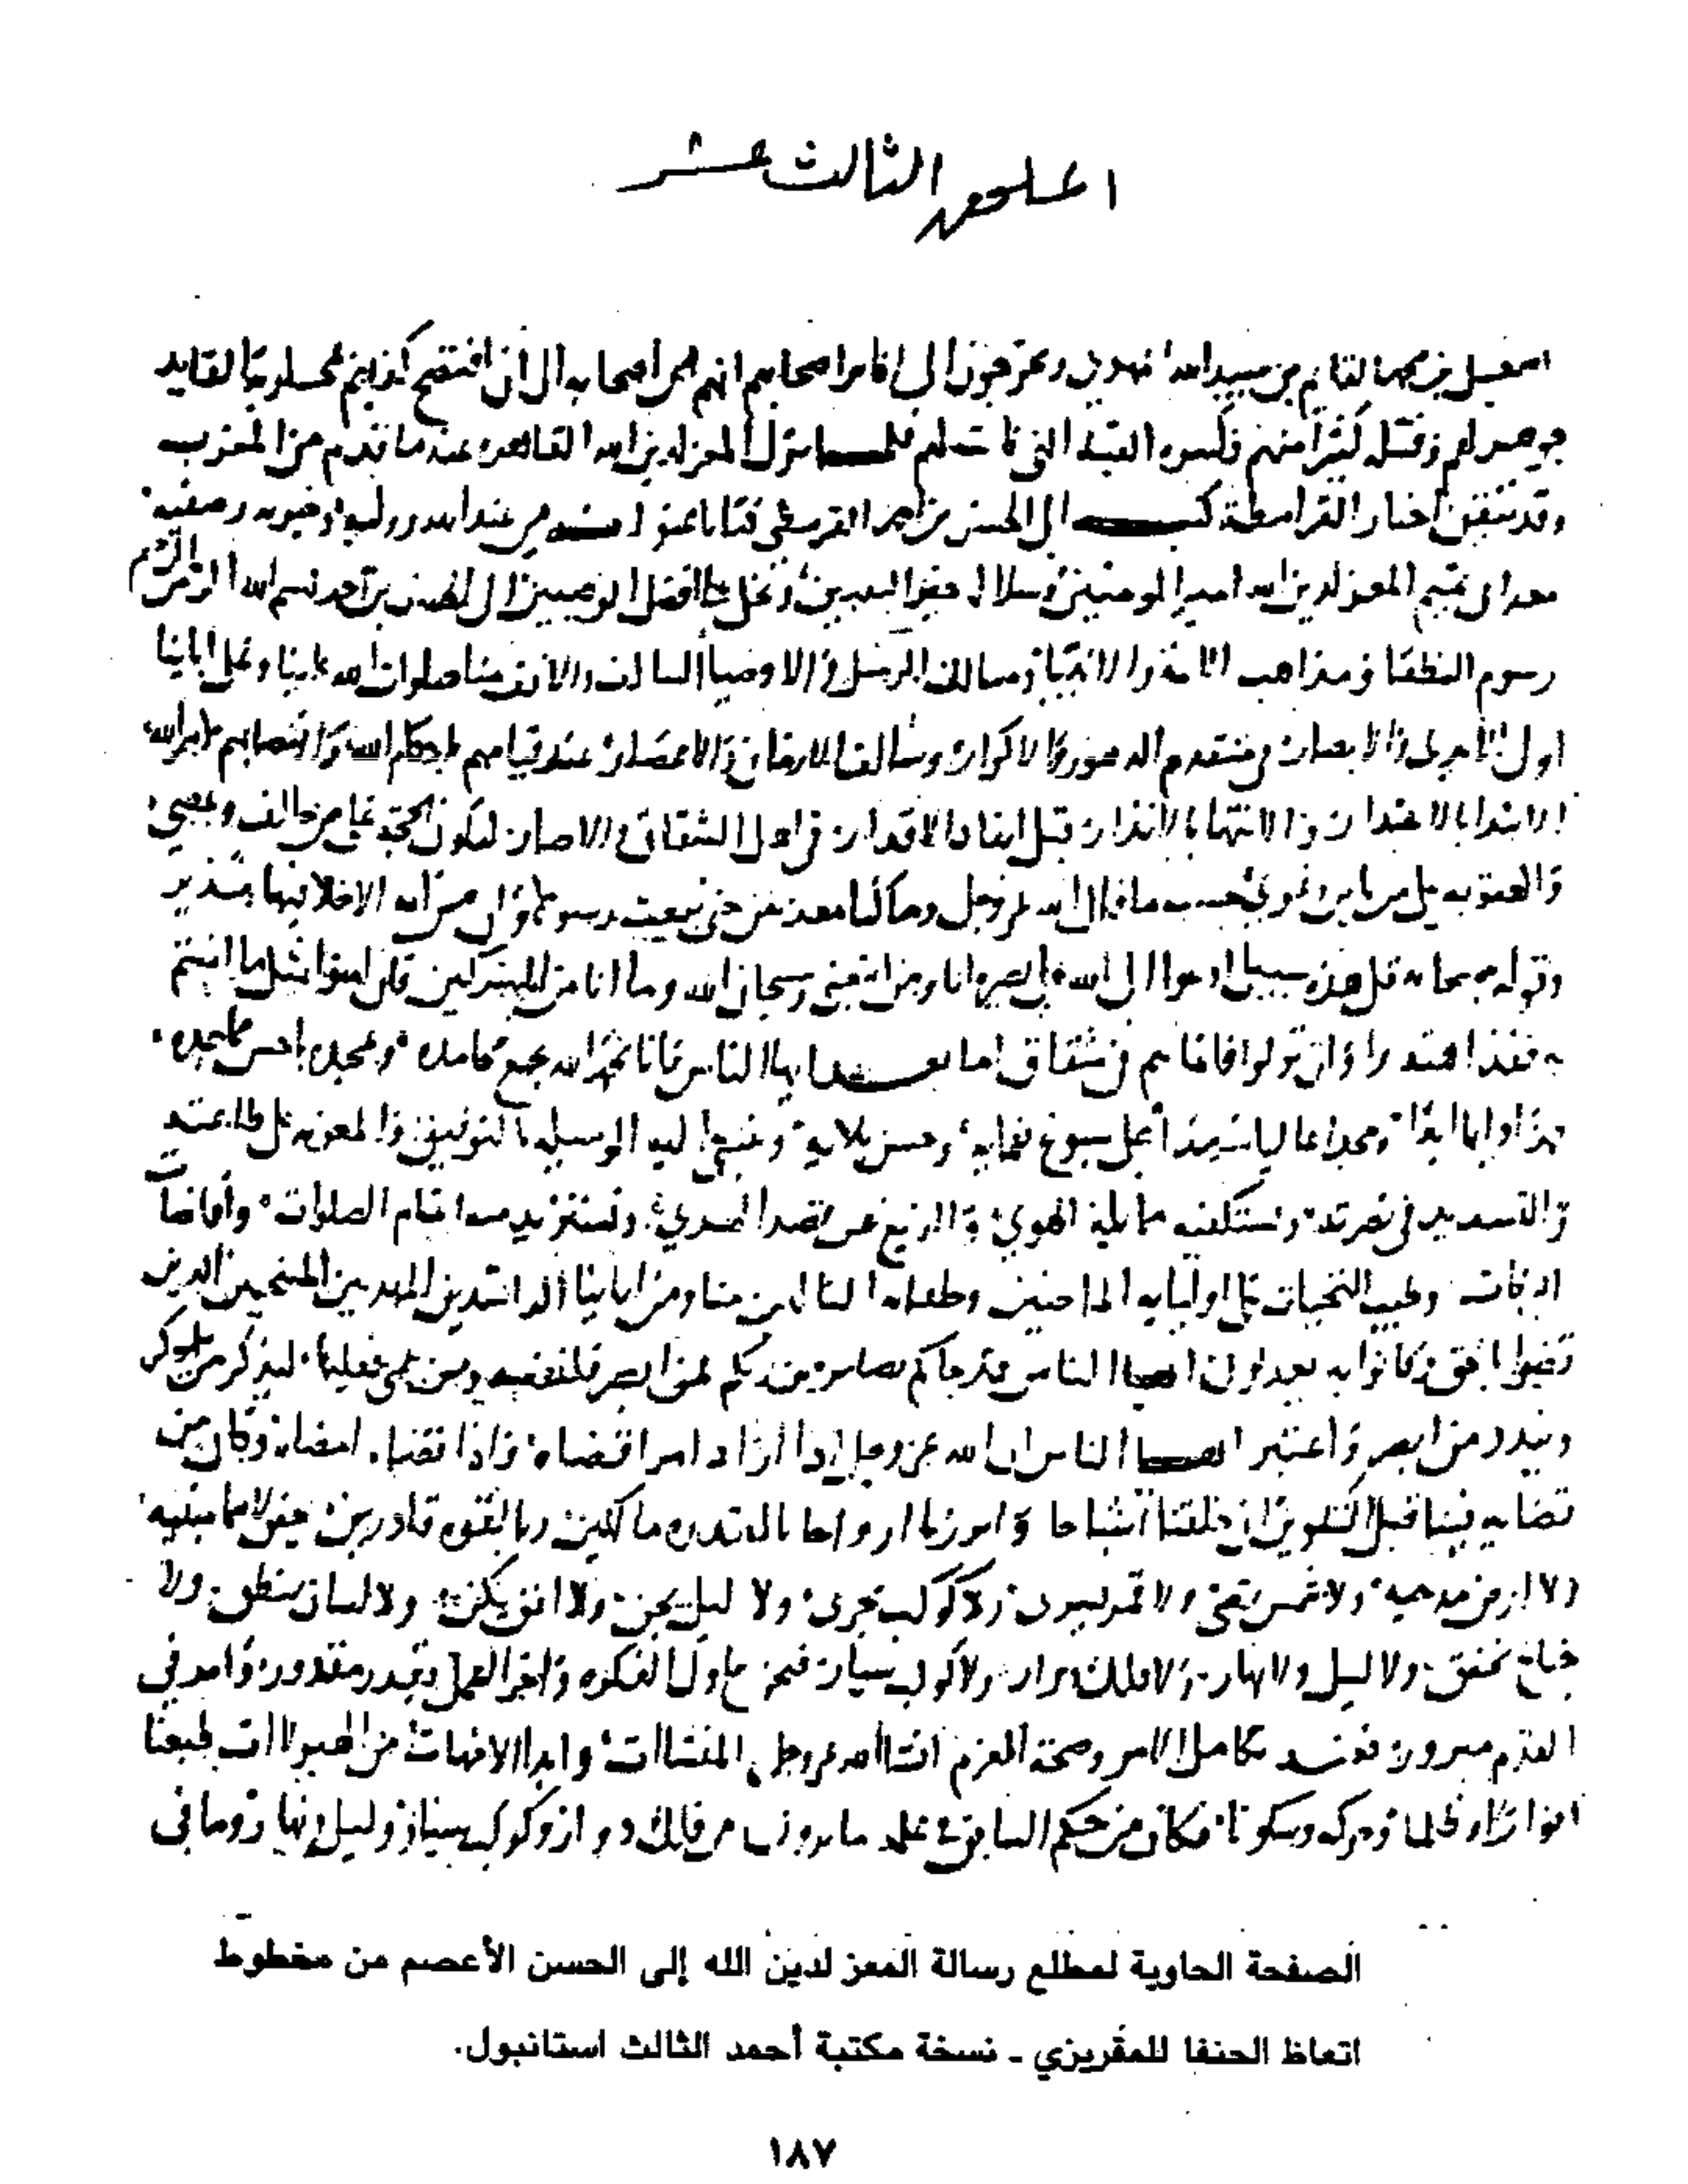 الملحق الثالث عشر
اسمعيل بن محمد القايم بن عبيد الله المهدي ويخرجون الى اكابر اصحابهم انهم من اصحابه الى ان افتضح كذبهم بمحاربة القايد
جوهر لهم وقتله كثيرا منهم وكسره القبة التي كانت لهم فلما نزل المعز لدين الله القاهرة عندما قدم من المغرب
وقد تيقن اخبار القرامطة كتب الى الحسن بن احمد القرمطي كتابا عنوانه من عبد الله ووليه وخيرته وصفيه
معد ابي تميم المعز لدين الله امير المومنين وسلالة خير النبيين ونجل علي افضل الوصيين الى الحسن بن احمد بسم الله الرحمن الرحيم
رسوم النطقا ومذاهب الايمة والانبيا ومسالك الرسل والاوصيا السالف والانف منا صلوات الله علينا وعلى اباينا
اولي الايدي والابصار في متقدم الدهور والاكوار وسالف الازمان والاعصار عند قيامهم باحكام الله وانتصابهم لامر الله
الابتدا بالاعذار والانتها بالانذار قبل انفاد الاقدار في اهل الشقاق والاصار لتكون الحجة على من خالف وعصى
والعقوبة على من باين وغوى حسب ما قال الله عز وجل وما كنا معذبين حتى نبعث رسولا وان من امة الا خلا فيها نذير
وقوله سبحانه قل هذه سبيلي ادعوا الى الله على بصيرة انا ومن اتبعني وسبحان الله وما انا من المشركين فان امنوا بمثل ما امنتم
به فقد اهتدوا وان تولوا فانما هم في شقاق اما بعد ايها الناس فانا نحمد الله بجميع محامده ونمجده باحسن مماجده
حمدا دايما ابدا ومجدا عاليا سرمدا على سبوغ نعمايه وحسن بلايه ونبتغي اليه الوسيلة بالتوفيق والمعونة على طاعته
والتسديد في نصرته ونستكفيه ممايلة الهوى والزيغ عن قصد الهدى ونستزيد منه اتمام الصلوات وافاضات
البركات وطيب التحيات على اوليايه الماضين وخلفايه التالين منا ومن اباينا الراشدين المهديين المنتخبين الذين
قضوا بالحق وكانوا به يعدلون ايها الناس قد جاكم بصاير من ربكم فمن ابصر فلنفسه ومن عمي فعليها ليذكر من يذكر
وينذر من ابصر واعتبر ايها الناس ان الله عز وجل اذا اراد امرا قضاه واذا قضاه امضاه وكان من
قضايه فينا قبل التكوين ان خلقنا اشباحا وابرزنا ارواحا بالقدرة مالكين وبالقوة قادرين حين لا سما مبنية
ولا ارض مدحية ولا شمس تضي ولا قمر يسري ولا كوكب يجري ولا ليل يجن ولا افق يكن ولا لسان ينطق ولا
جناح يخفق ولا ليل ولا نهار ولا فلك دوار ولا كوكب سيار فنحن اول الفكرة واخر العمل بقدر مقدور وامر في
القدم مبرور فعند تكامل الامر وصحة العزم انشا الله عز وجل المنشات وابدا الامهات من الهيولات طبعنا
انوارا وظلما وحركة وسكونا فكان من حكمه السابق في علمه ما ترون من فلك دوار وكوكب سيار وليل ونهار وما في
الصفحة الحاوية لمطلع رسالة المعز لدين الله إلى الحسن الأعصم من مخطوط
اتعاظ الحنفا للمقريزي ـ نسخة مكتبة أحمد الثالث استانبول.
١٨٧